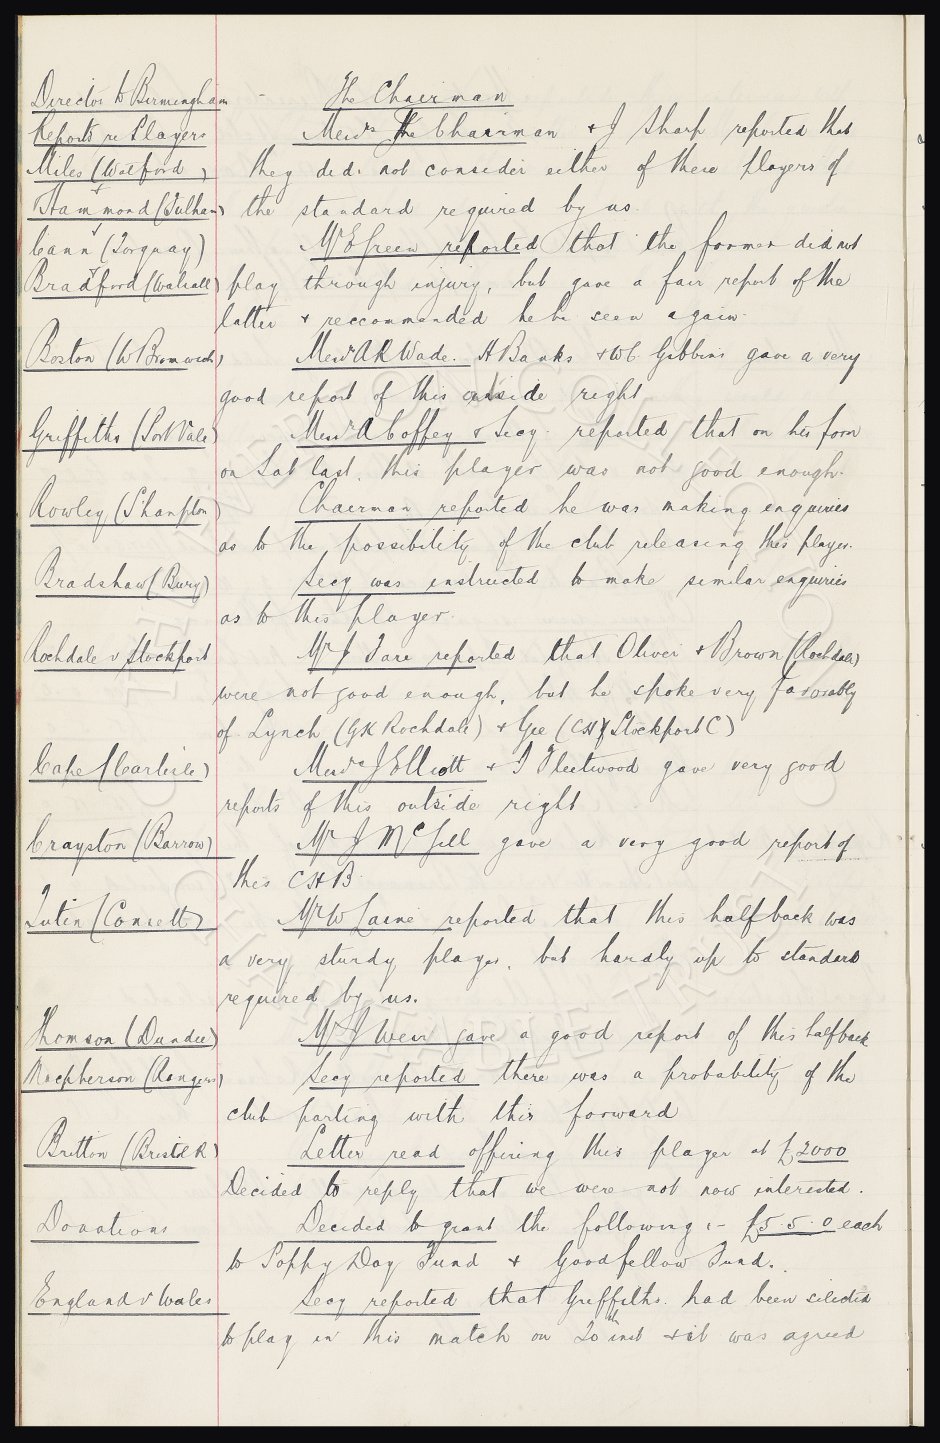 Director to Birmingham - The Chairman
Reports re Players Messrs The Chairman & J Sharp reported that
Miles (Watford) they did not consider either of these players of
Hammond (Fulham) the standard required by us.
Cann (Torquay) Mr E Green reported that the former did not
Bradford (Walsall) play through injury, but gave a fair report of the
latter & reccommended he be seen again.
Boston (W Bromwich) Messrs A R Wade. H Banks & W C Gibbins gave a very
good report of this outside right
Griffiths (Port Vale) Messrs A Coffey & Secy. reported that on his form
on Sat last, this player was not good enough.
Rowley (S'hampton) Chairman reported he was making enquiries
as to the possibility of the club releasing this player.
Bradshaw (Bury) Secy was instructed to make similar enquiries
as to this player.
Rochdale v Stockport Mr J Fare reported that Oliver & Brown (Rochdale)
were not good enough, but he spoke very favorably
of Lynch (GK Rochdale) & Gee (CH Stockport C)
Cape (Carlisle) Messrs J Elliott & J Fleetwood gave very good
reports of this outside right
Crayston (Barrow) Mr J McGill gave a very good report of
this C H B.
Lutin (Consett) Mr W Laine reported that this half back was
a very sturdy player, but hardly up to standard
required by us.
Thomson (Dundee) Mr J Weir gave a good report of this half back
Macpherson (Rangers) Secy reported there was a probability of the
club parting with this forward
Britton (Bristol R) Letter read offering this player at £2000
Decided to reply that we were not now interested.
Donations Decided to grant the following :- £5.5.0 each
to Poppy Day Fund & Goodfellow Fund.
England v Wales Secy reported that Griffiths. had been selected
to play in this match on 20th inst & it was agreed